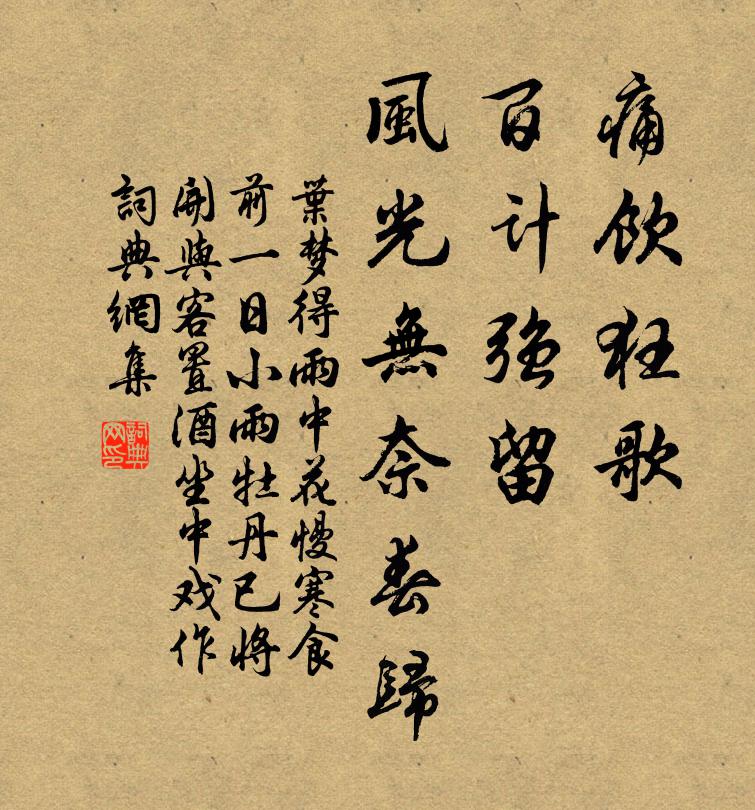 痛飲狂歌
百计强留
風光無奈春歸
葉梦得雨中花慢寒食
前一日小雨牡丹已將
開與客置酒坐中戏作
詞典網集
詞典网印